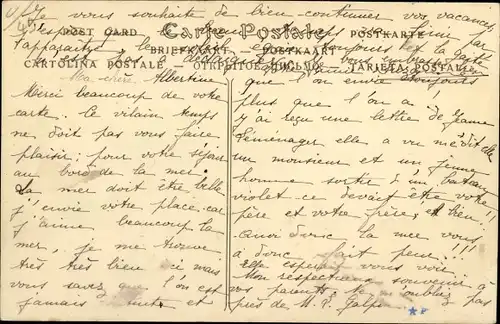 Je vous souhaite de bien continuer vos vacances
POST CARD
Carte Postale
POSTKARTE
BRIEFKAART
POSTKAART
CARTOLINA POSTALE
TARJETA POSTAL
Ma chère Albertine
Merci beaucoup de votre
carte. Le vilain temps
ne doit pas vous faire
plaisir; pour votre séjour
au bord de la mer.
La mer doit être belle
j'envie votre place car
j'aime beaucoup la
mer, je me trouve
très très bien ici mais
vous savez que l'on est
jamais et
que l'on envie toujours
plus que l'on a.
J'y ai reçu une lettre de Jeanne
elle a vu
un monsieur et un jeune
homme sortir d'un bateau
violet ce devait être votre
père et votre frère, et bien!
Quoi donc la mer vous
a donc fait peur!!!
Elle espérait vous voir.
Mon respectueux souvenir à
vos parents, ne m'oubliez pas
près de M. P.